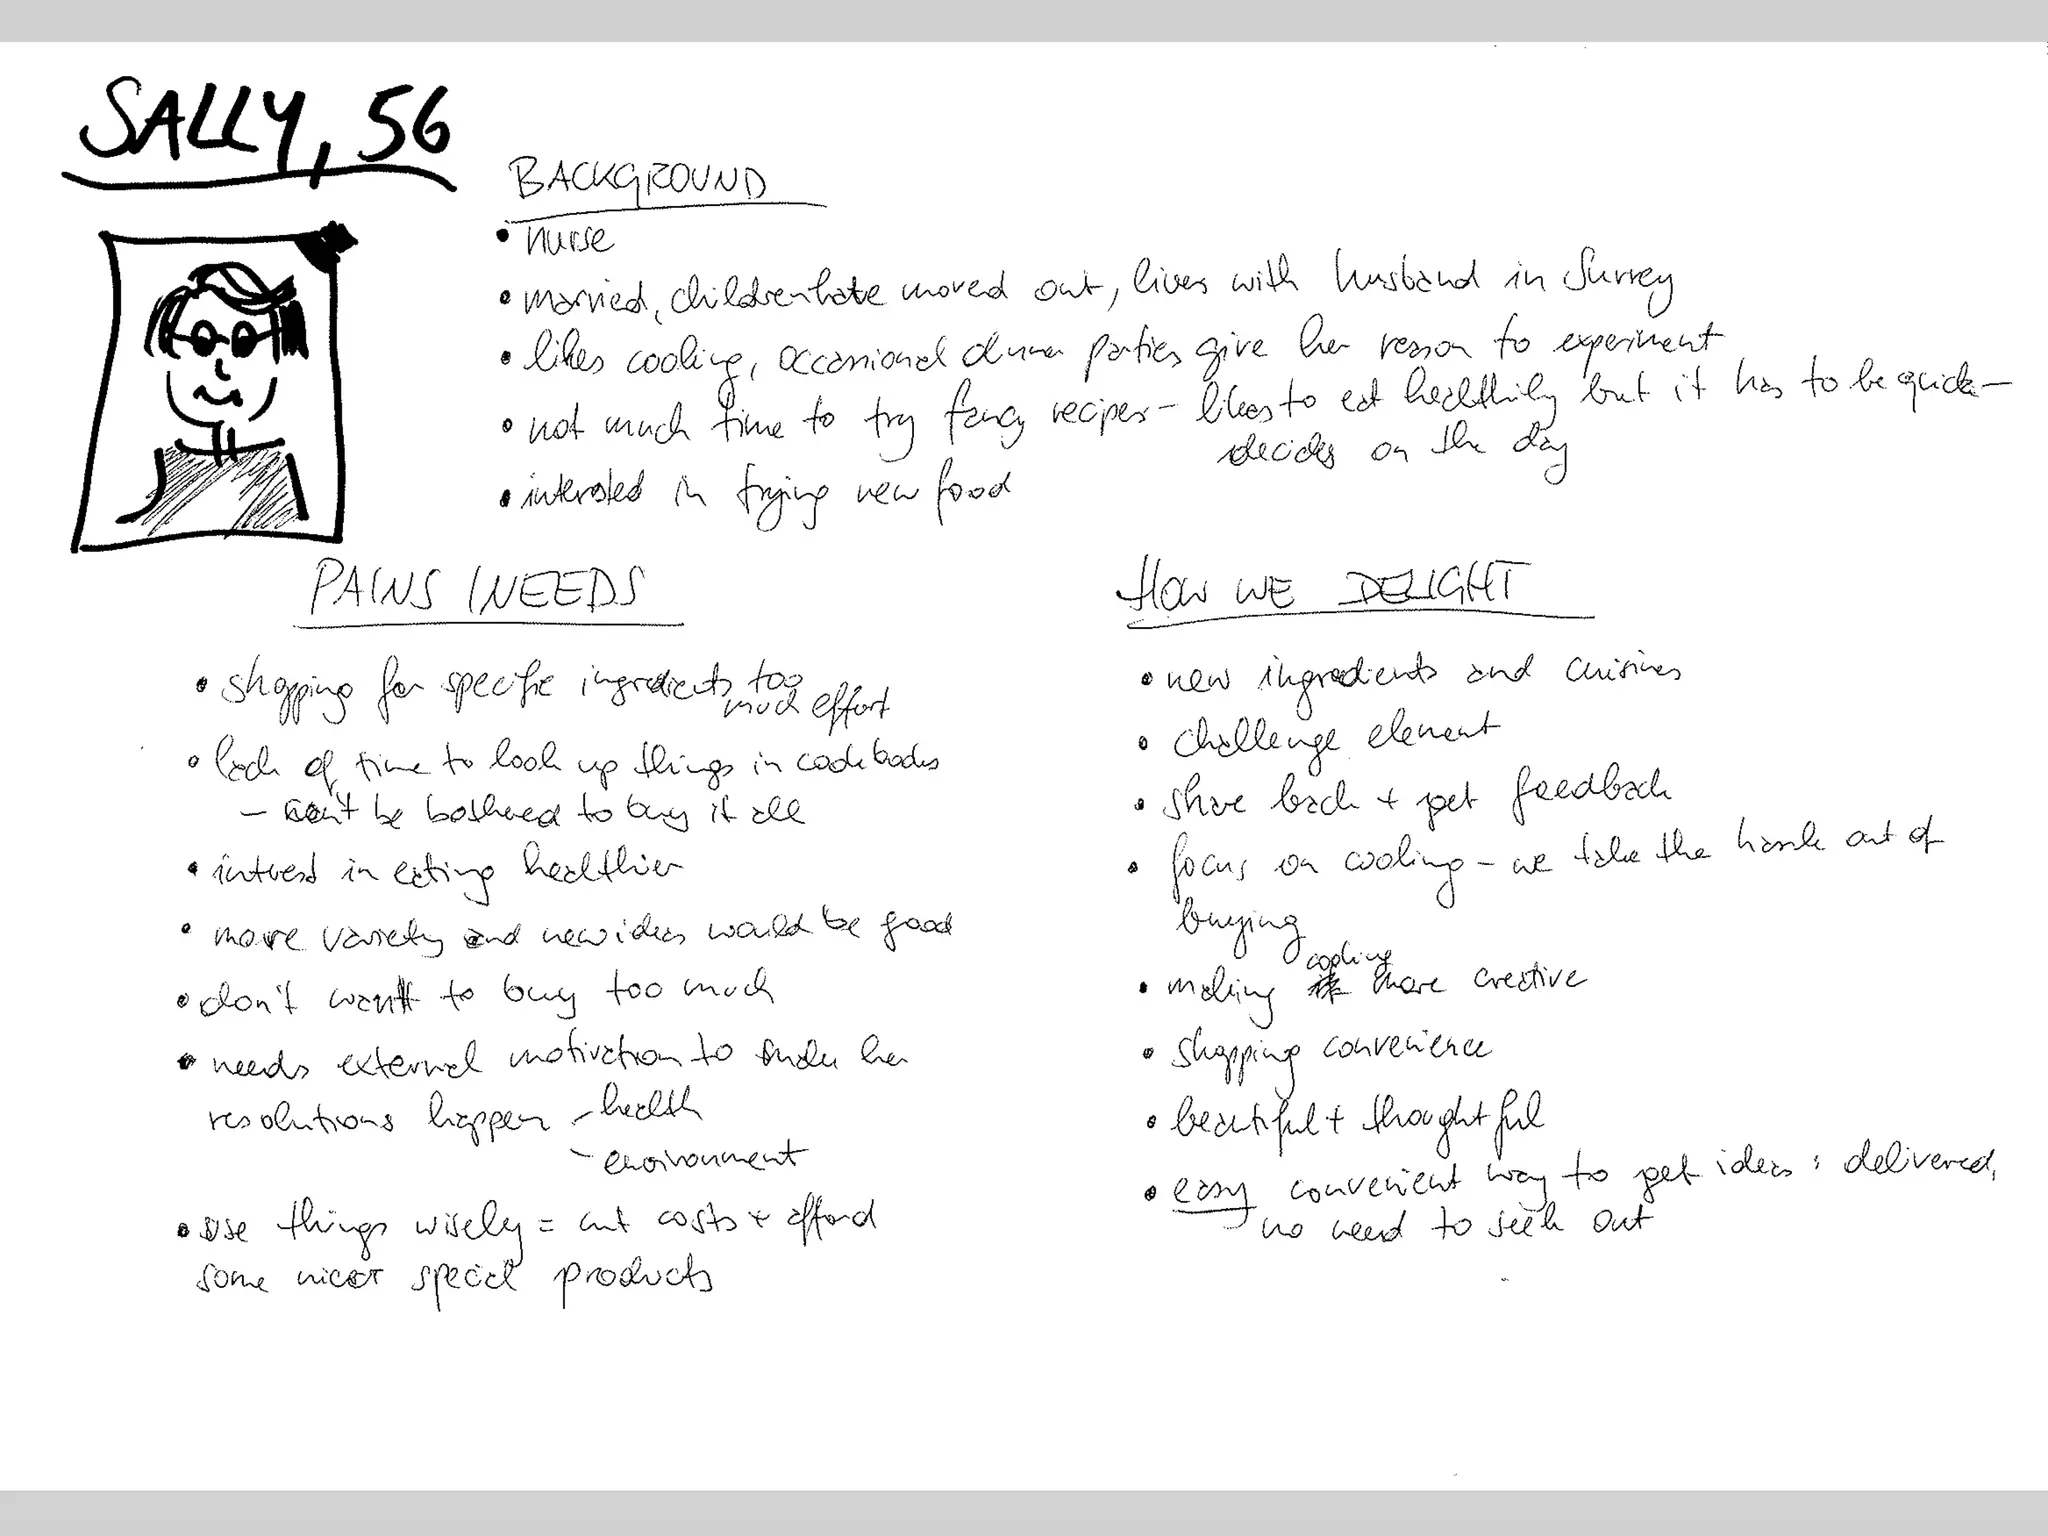 SALLY, 56
BACKGROUND
• nurse
• married, children have moved out, lives with husband in Surrey
• likes cooking, occassional dinner parties give her reason to experiment
• not much time to try fancy recipes – likes to eat healthily but it has to be quick –
decides on the day
• interested in trying new food
PAINS / NEEDS
• shopping for specific ingredients too
much effort
• lack of time to look up things in cookbooks
– can't be bothered to buy it all
• interest in eating healthier
• more variety and new ideas would be good
• don't want to buy too much
• needs external motivation to make her
resolutions happen – health
– environment
• use things wisely = cut costs + afford
some nicer special products
HOW WE DELIGHT
• new ingredients and cuisines
• challenge element
• share back + get feedback
• focus on cooking – we take the hassle out of
buying
• making cooking more creative
• shopping convenience
• beautiful + thoughtful
• easy convenient way to get ideas : delivered,
no need to seek out